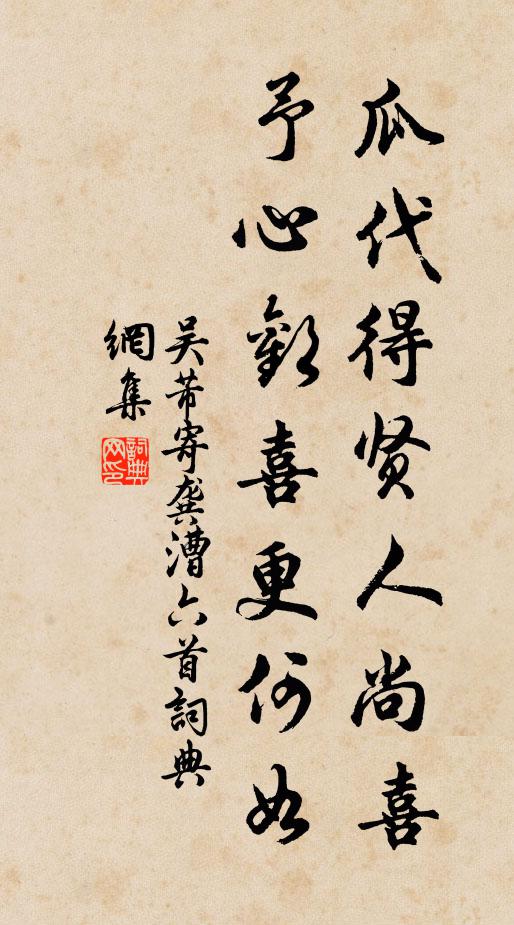 瓜代得贤人尚喜
予心歡喜更何如
吴芾寄龚漕六首詞典
網集
詞典网印